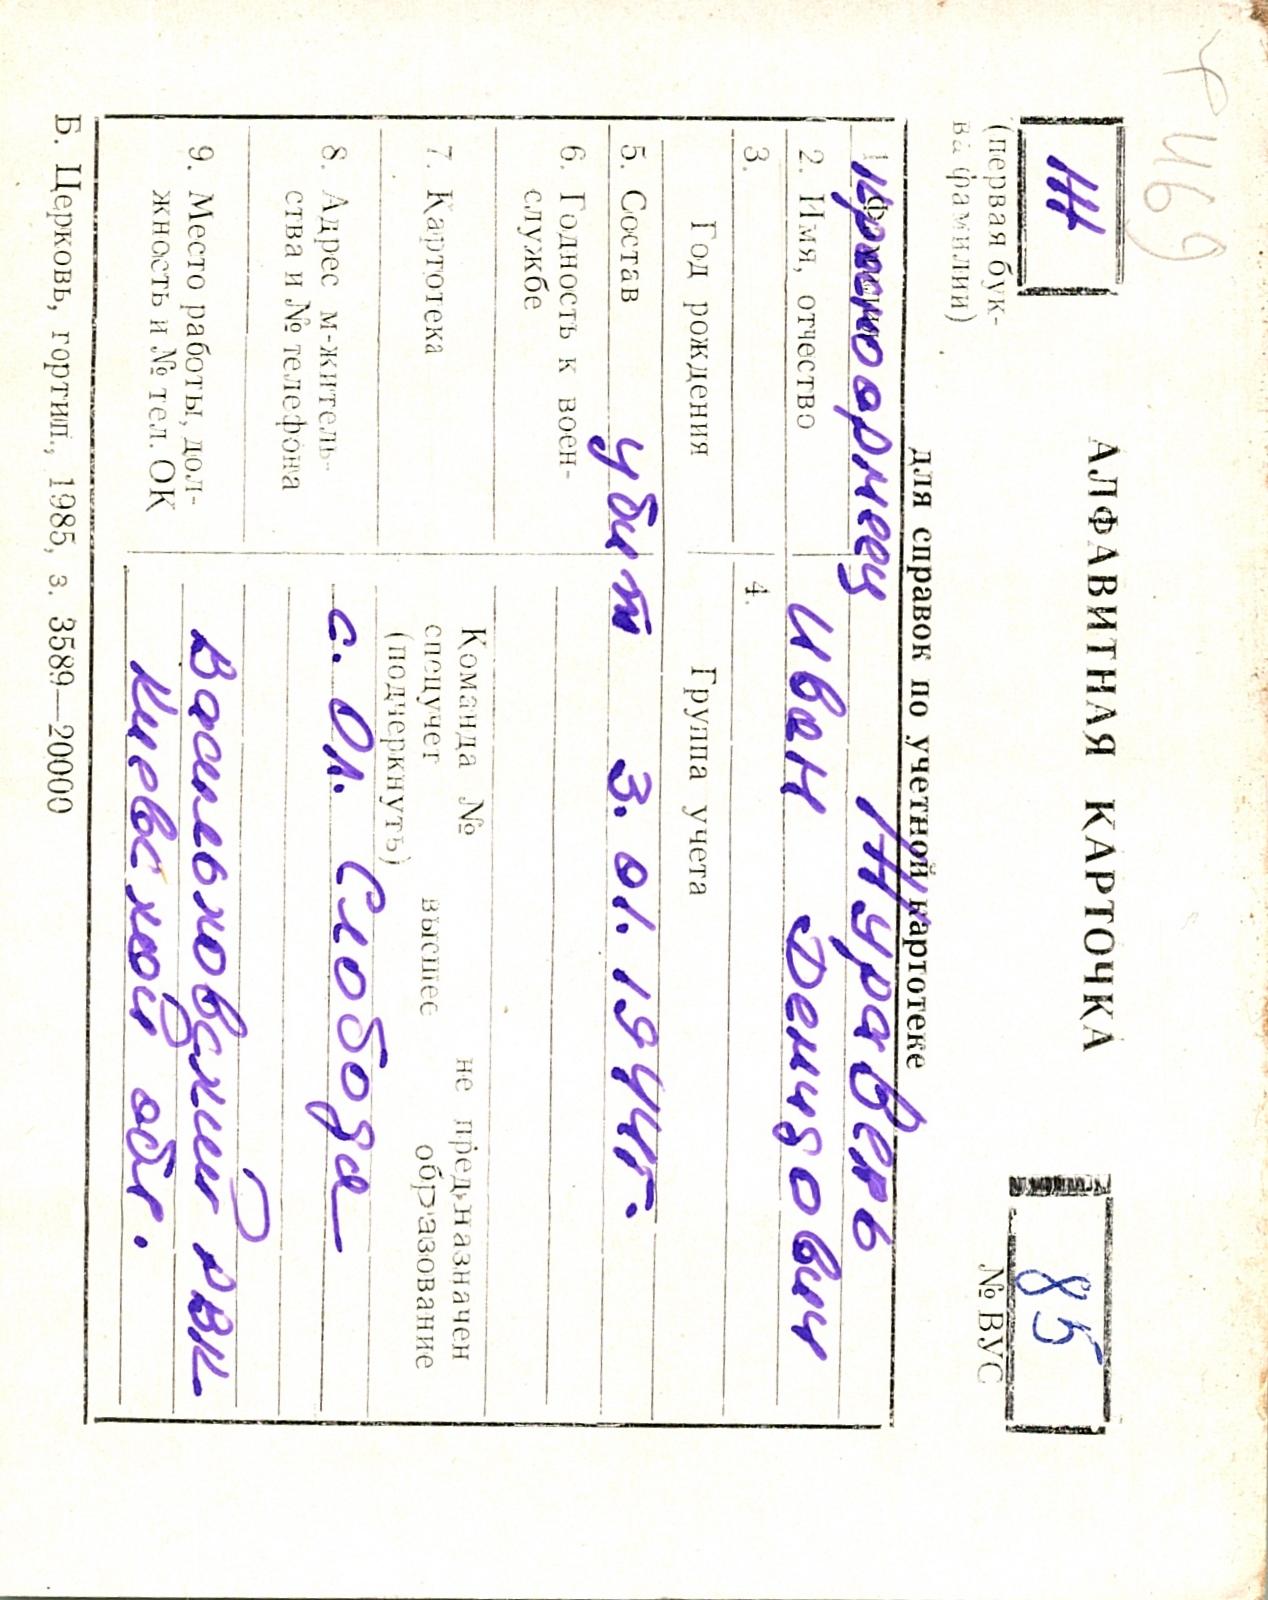 469
Ж
(первая бук-
ва фамилии)
АЛФАВИТНАЯ КАРТОЧКА
для справок по учетной картотеке
85
№ ВУС
1. Фамилия
красноармеец Журавель
2. Имя, отчество Иван Демидович
3. Год рождения
4. Группа учета
5. Состав убит 3.01.1944г.
6. Годность к воен-
службе
7. Картотека
Команда № не пред,назначен
спецучет высшее образование
(подчеркнуть)
8. Адрес м-житель-
ства и № телефона
с. Ол. Слобода
9. Место работы, дол-
жность и № тел. ОК
Васильковский РВК
Киевской обл.
Б. Церковь, гортип., 1985, з. 3589—20000